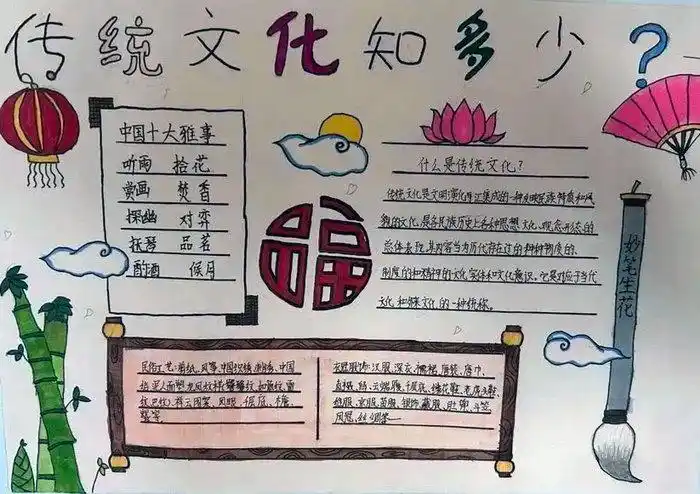 传统文化知多少?
中国十大雅事
听雨 拾花
赏画 焚香
探幽 对弈
抚琴 品茗
酌酒 候月
福
什么是传统文化?
传统文化是文明演化而汇集成的一种反映民族特质和风
貌的文化,是各民族历史上各种思想文化、观念形态的
总体表现,其内容当为历代存在过的种种制度的、
制度的和精神的文化实体和文化意识。它是对应于当代
文化和外来文化的一种统称。
妙笔生花
民俗工艺:剪纸、风筝、中国织绣、刺绣、中国
结、泥人面塑、龙凤纹样
祥云图案、凤眼、
衣冠服饰:汉服、深衣、襦裙、唐装、唐巾、
绣花鞋、老虎头鞋、
旗服、肚兜、斗笠、
凤冠、丝绸等